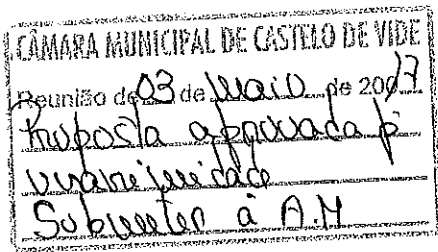 CÂMARA MUNICIPAL DE CASTELO DE VIDE
Reunião de 03 de Maio de 2007
Proposta aprovada p
unanimidade
Submeter à A.M